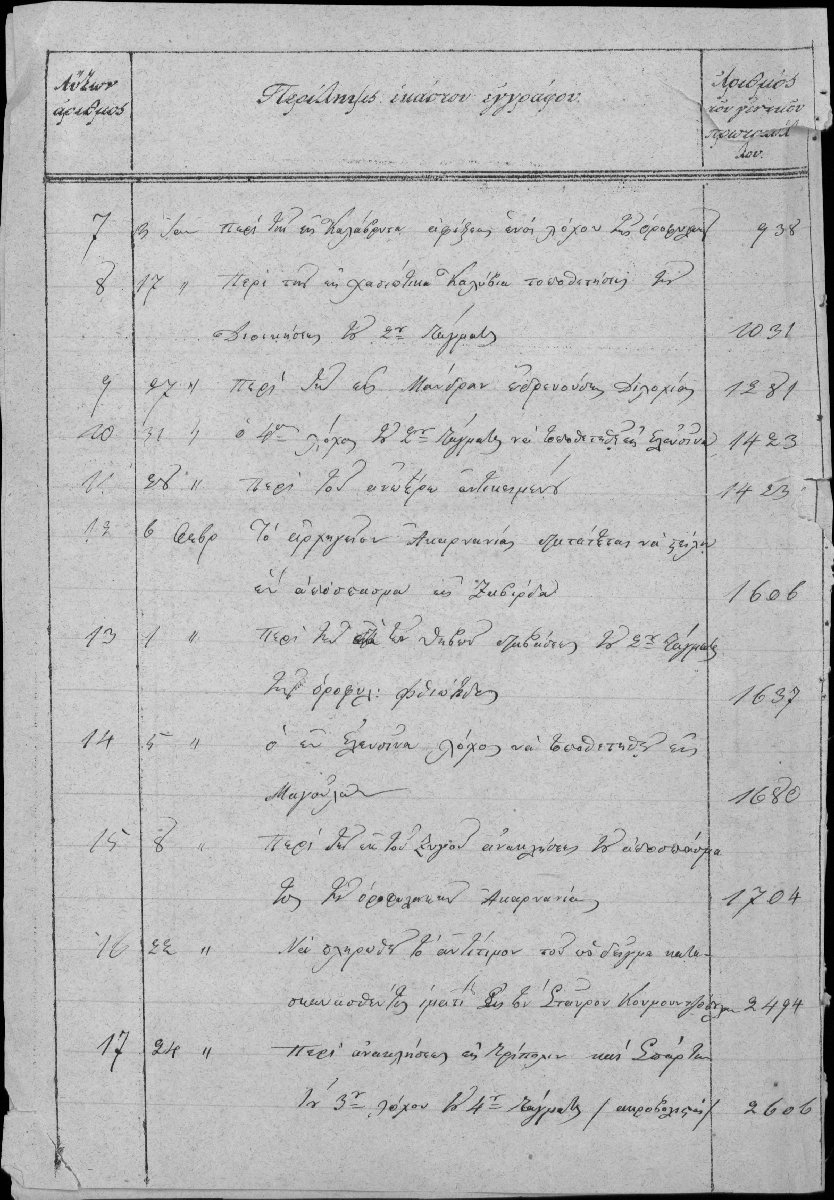 Αὔξων
ἀριθμός
Περίληψις ἑκάστου ἐγγράφου.
Ἀριθμὸς
τοῦ γενικοῦ
πρωτοκόλ
λου.
7 3 Ἰαν Περὶ τῆς εἰς Καλάβρυτα ἀφίξεως ἑνὸς λόχου τῆς ὁροφυλακῆς 938
8 17 〃 Περὶ τῆς εἰς Χασιώτικα Καλύβια τοποθετήσεως τῆς
Διοικήσεως τοῦ 2ου Τάγματος 1031
9 27 〃 Περὶ τῆς εἰς Μάνδραν ἑδρευούσης Διλοχίας 1281
10 31 〃 ὁ 4ος λόχος τοῦ 2ου Τάγματος νὰ τοποθετηθῇ εἰς Ἐλευσῖνα 1423
11 28 〃 Περὶ τοῦ ἀνωτέρω ἀντικειμένου 1423
12 6 Φεβρ Τὸ ἀρχηγεῖον Ἀκαρνανίας διατάττεται νὰ στείλῃ
ἓν ἀπόσπασμα εἰς Ζαβέρδα 1606
13 1 〃 Περὶ τῆς ἐκ τῶν Θηβῶν μεταβάσεως τοῦ 2ου Τάγματος
τῆς ὁροφυλ: Φθιώτιδος 1637
14 5 〃 ὁ ἐν Ἐλευσῖνα λόχος νὰ τοποθετηθῇ εἰς
Μαγούλαν 1680
15 8 〃 Περὶ τῆς ἐκ τοῦ ἀνακλήσεως τοῦ ἀποσπάσμα
τος τῆς ὁροφυλακῆς Ἀκαρνανίας 1704
16 22 〃 Νὰ πληρωθῇ τὸ ἀντίτιμον τοῦ δεῖγμα κατα-
σκευασθέντος εἰς τὸν Σταῦρον 2494
17 24 〃 Περὶ ἀνακλήσεως εἰς Τρίπολιν καὶ Σπάρτην
τοῦ 3ου λόχου τοῦ 4ου Τάγματος / ἀκροβολιστῶν / 2606